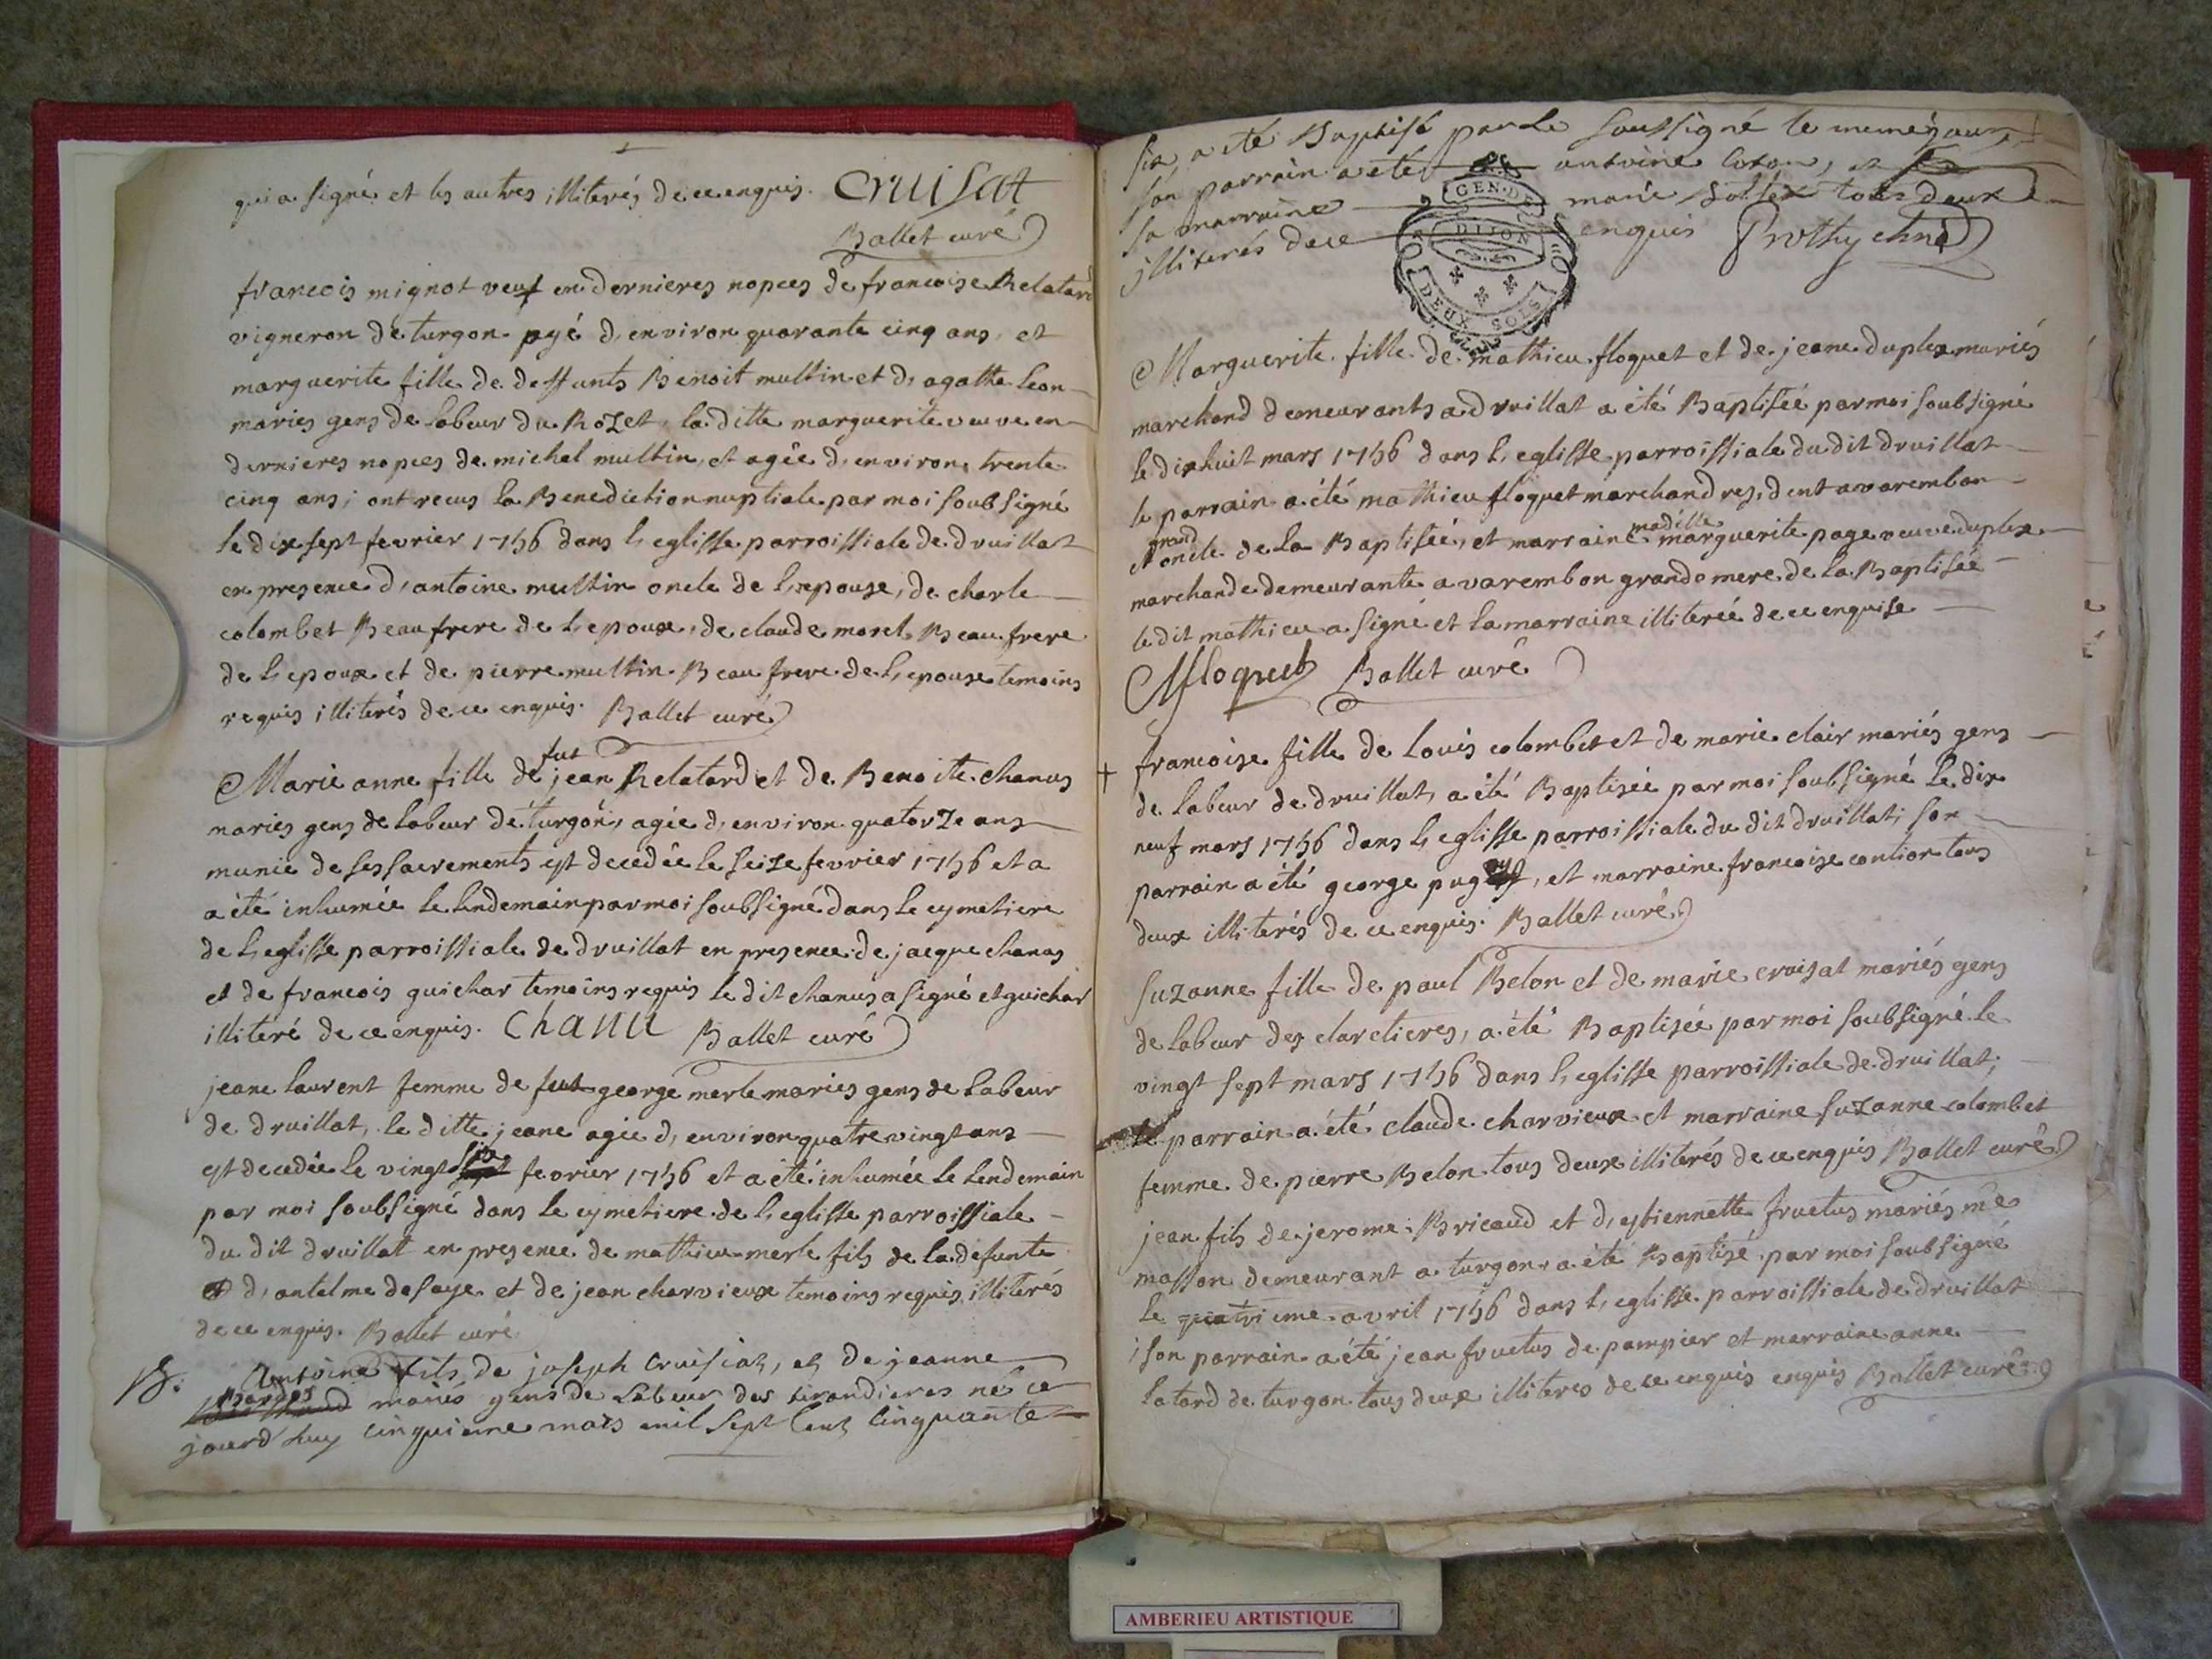 qui a signé et les autres illiterés de ce enquis. Cruisat
Ballet curé
francois mignot veuf en dernieres nopces de francoise Relatard
vigneron de turgon agé d'environ quarante cinq ans, et
marguerite fille de deffunts Benoit multin et d'agathe leon
maries gens de labeur du Rozet, la ditte marguerite veuve en
dernieres nopces de michel multin, et agée d'environ trente
cinq ans; ont recus la Benediction nuptiale par moi soubsigné
le dix sept fevrier 1756 dans l'eglisse parroissiale de druillat
en presence d'antoine multin oncle de l'epouse, de charle
colombet Beaufrere de l'epoux, de claude morel Beau frere
de l'epoux et de pierre multin Beau frere de l'epouse temoins
requis illiterés de ce enquis. Ballet curé
fut
Marie anne fille de jean Relatard et de Benoite chanus
maries gens de labeur de turgon, agée d'environ quatorze ans
munie de ses sacrements est decedée le seize fevrier 1756 et a
a été inhumée le lendemain par moi soubsigné dans le cymetiere
de l'eglisse parroissiale de druillat en presence de jacque chanas
et de francois guichar temoins requis le dit chanus a signé et guichar
illiteré de ce enquis. Chanu Ballet curé
jeane laurent femme de fut george merle maries gens de labeur
de druillat, le ditte jeane agée d'environ quatre vingt ans
est decedée le vingt six fevrier 1756 et a été inhumée le lendemain
par moi soubsigné dans le cymetiere de l'eglisse parroissiale
du dit druillat en presence de mathieu merle fils de la defunte
d'antelme defaye et de jean charvieux temoins requis illiterés
de ce enquis. Ballet curé
B. Antoine fils de joseph Cruisiat, et de jeanne
mariés gens de Labeur des tirandieres né ce
jourd'huy cinquieme mars mil sept Cent Cinquante
six a eté Baptisé par le soussigné le meme jour,
son parrain a eté antoine Coton, et
sa marraine marie tous deux
illiterés de ce enquis Prothy
GEN. DE
DIJON
DEUX SOLS
Marguerite fille de mathieu floquet et de jeane duplex mariés
marchand demeurants a druillat a été Baptisée par moi soubsigné
le dixhuit mars 1756 dans l'eglisse parroissiale du dit druillat
le parrain a été mathieu floquet marchand resident a varembon
grand madille
et oncle de la Baptisée, et marraine marguerite page veuve duplex
marchande demeurante a varembon grande mere de la Baptisée
le dit mathieu a signé et la marraine illiterée de ce enquise
Mfloquet Ballet curé
+ francoise fille de Louis colombet et de marie clair mariés gens
de labeur de druillat, a été Baptisée par moi soubsigné le dix
neuf mars 1756 dans l'eglisse parroissiale du dit druillat; son
parrain a été george pug, et marraine francoise contion tous
deux illiterés de ce enquis. Ballet curé
Suzanne fille de paul Belon et de marie croisat mariés gens
de labeur des clarctieres, a été Baptisée par moi soubsigné le
vingt sept mars 1756 dans l'eglisse parroissiale de druillat;
le parrain a été claude charvieux et marraine suzanne colombet
femme de pierre Belon tous deux illiterés de ce enquis Ballet curé
jean fils de jerome Bricaud et d'estiennette fructus mariés me
masson demeurant a turgon a été Baptisé par moi soubsigné
le quatrieme avril 1756 dans l'eglisse parroissiale de druillat
son parrain a été jean fructus de pampier et marraine anne
latard de turgon tous deux illiteres de ce enquis enquis Ballet curé
AMBERIEU ARTISTIQUE